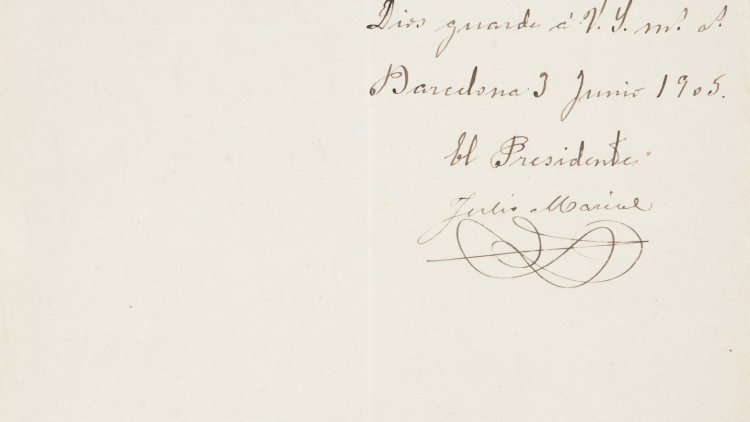 Dios guarde á V. Y. m.s a.s
Barcelona 3 Junio 1905.
El Presidente
Julio Marial